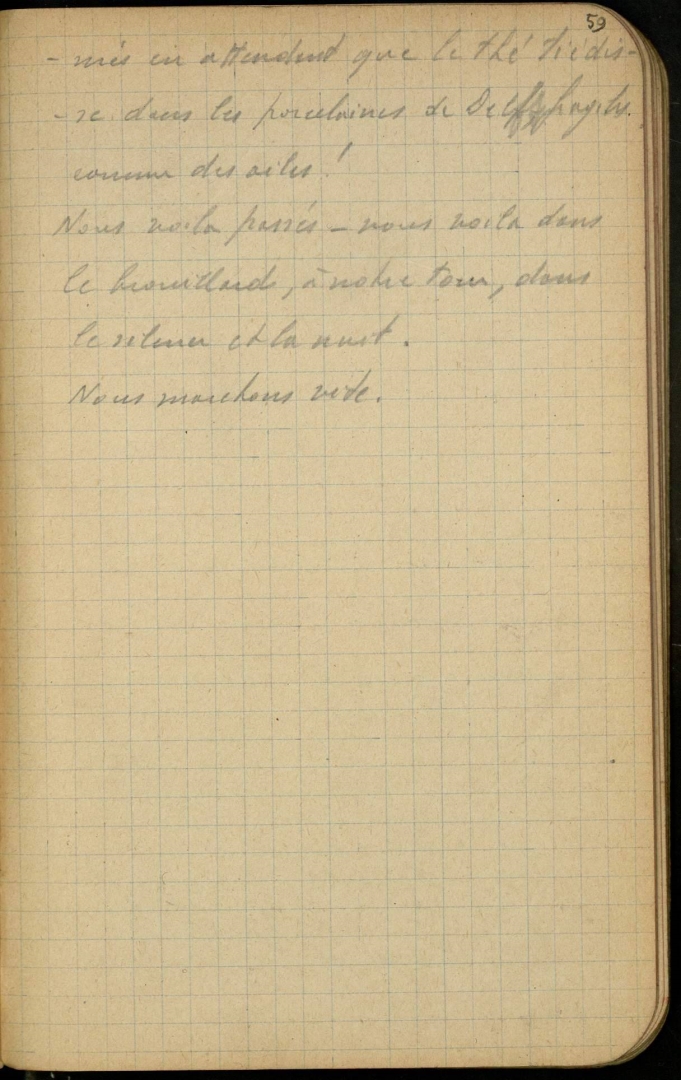 59
- més en attendant que le thé tiédis-
- se dans les porcelaines de Delft fragiles
comme des ailes !
Nous voila passés _ nous voila dans
le brouillards, à notre tour, dans
le silence et la nuit.
Nous marchons vite.